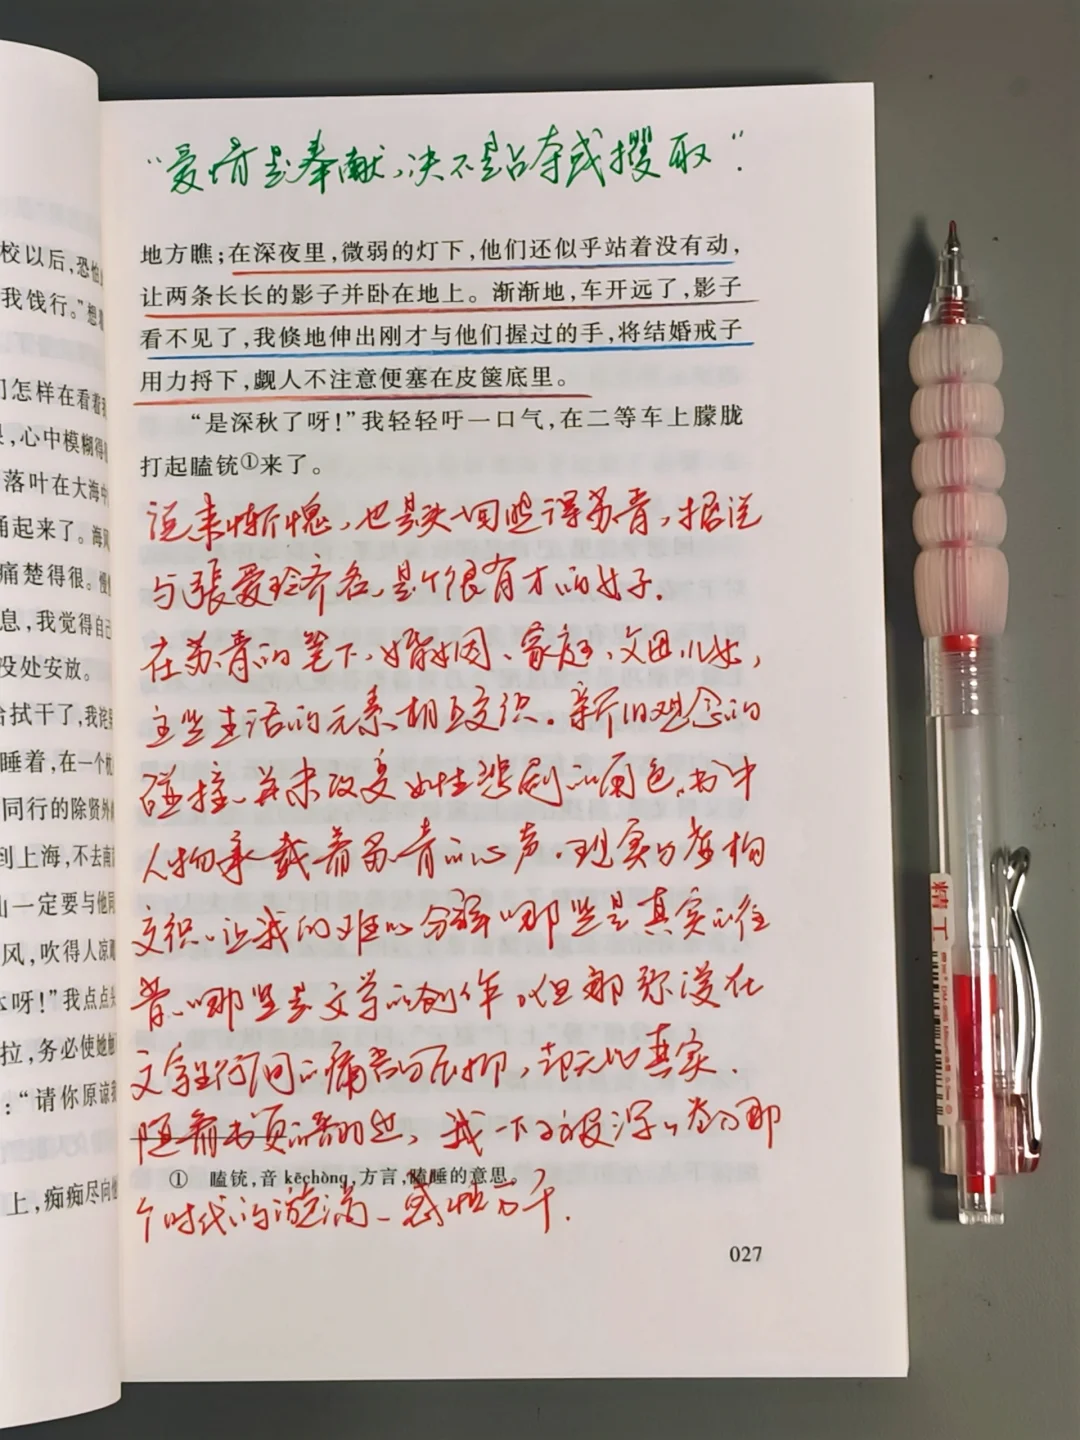 校以后，恐怕
我饯行。”想
们怎样在看着
心中模糊得
落叶在大海中
涌起来了。海风
痛楚得很。
息，我觉得自己
没处安放。
拭干了，我
睡着，在一个
同行的除贤外
到上海，不去南
山一定要与他同
风，吹得人凉
呀！”我点点头
拉，务必使她
：“请你原谅我
上，痴痴尽向他
“爱情是奉献，决不是占夺或攫取”.
地方瞧；在深夜里，微弱的灯下，他们还似乎站着没有动，
让两条长长的影子并卧在地上。渐渐地，车开远了，影子
看不见了，我倏地伸出刚才与他们握过的手，将结婚戒子
用力捋下，觑人不注意便塞在皮箧底里。
“是深秋了呀！”我轻轻吁一口气，在二等车上朦胧
打起瞌铳①来了。
说来惭愧，也是头一回晓得苏青，据说
与張爱玲齐名，是个很有才的女子.
在苏青的笔下，婚姻、家庭、父母儿女，
这些生活的元素相互交织。新旧观念的
碰撞，并未改变女性悲剧的角色，书中
人物承载着苏青的心声。现实与虚构
交织，让我的难以分辨哪些是真实的往
昔，哪些是文学的创作。但那弥漫在
文字里行间的痛苦与压抑，却无比真实.
随着书页的翻动，我一下子被深深卷入那
① 瞌铳，音kēchòng，方言，瞌睡的意思。
个时代的漩涡，感慨万千.
027
精工